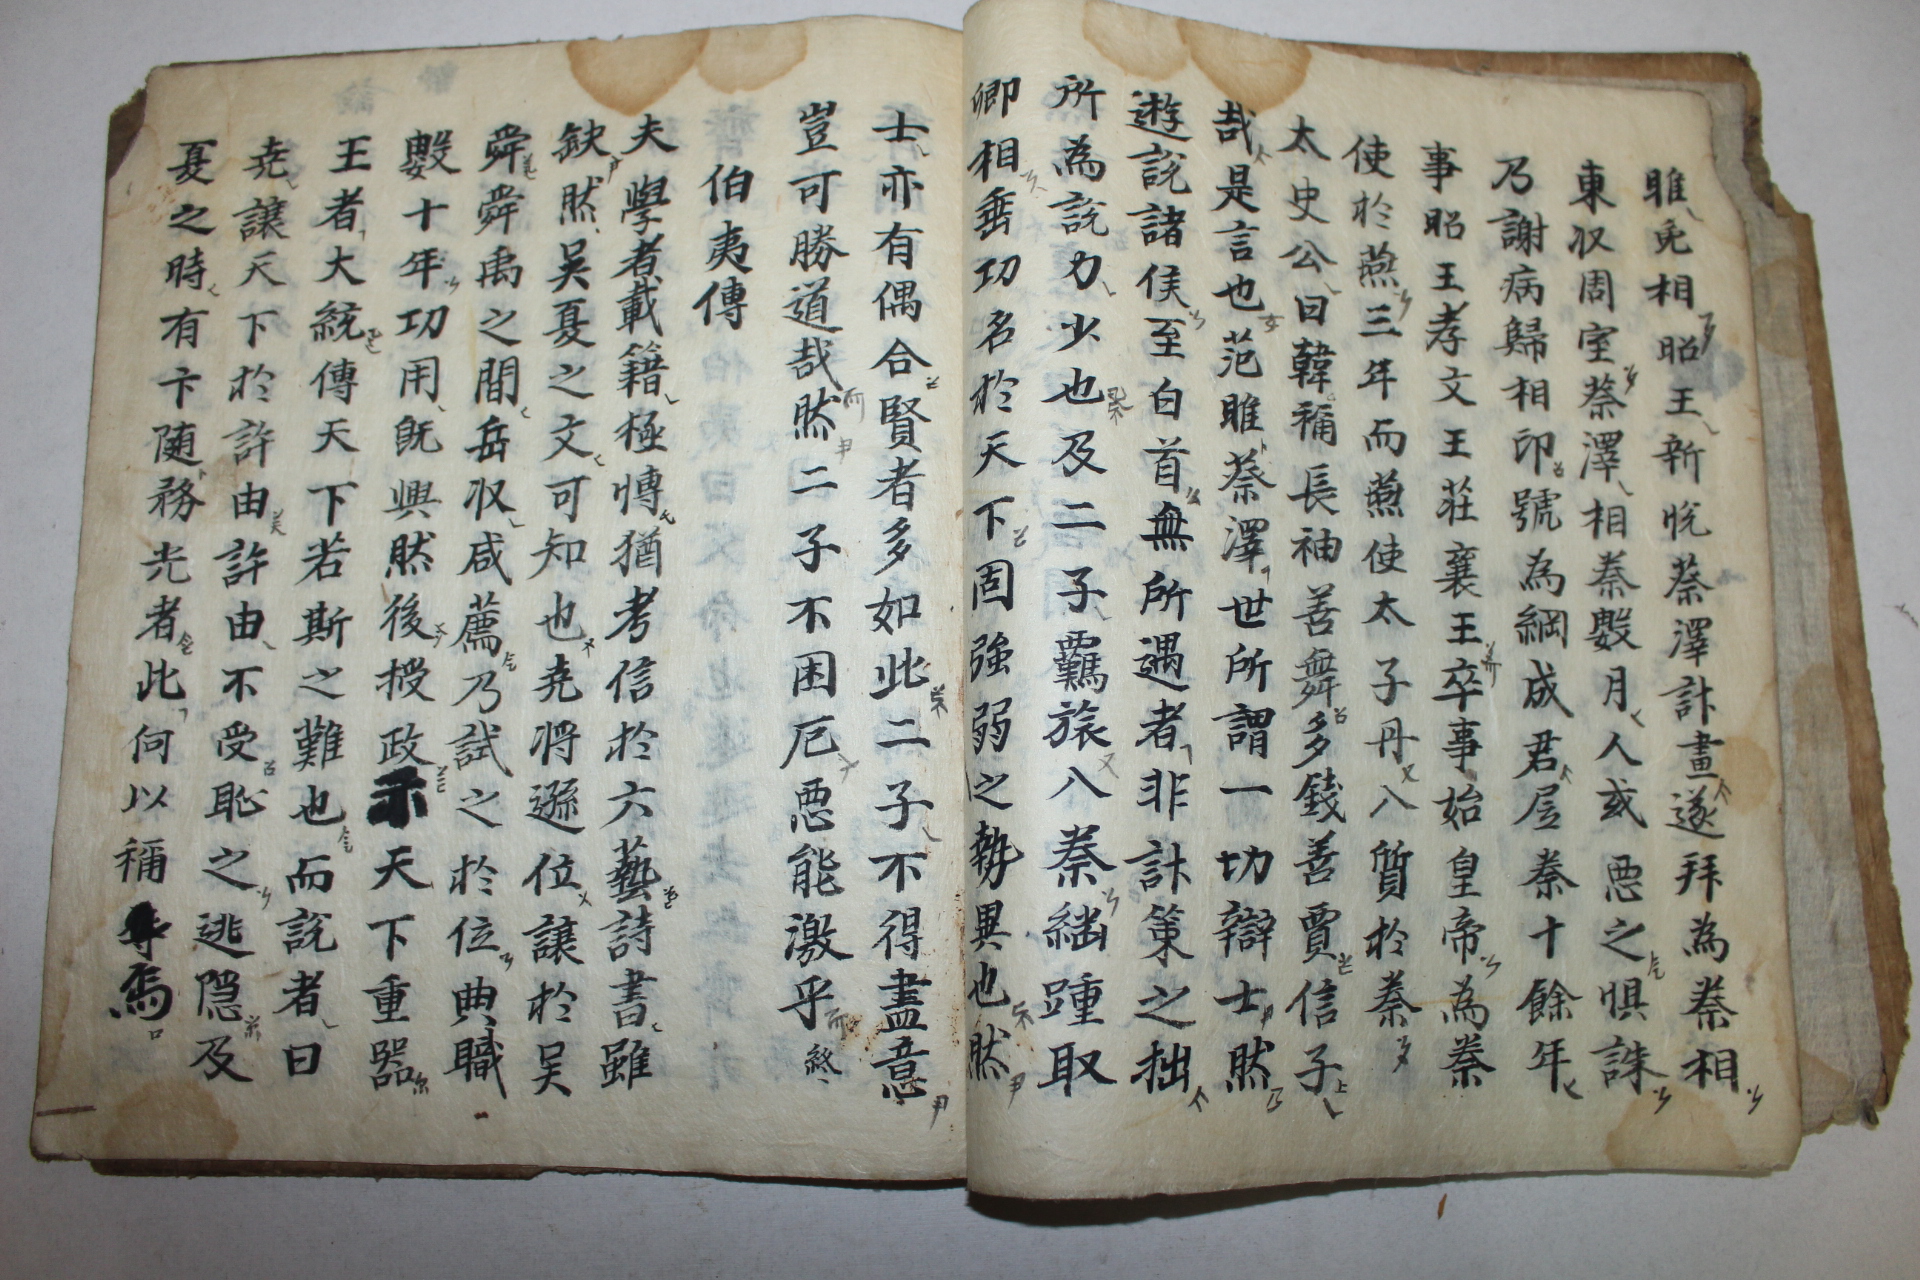 睢免相昭王新悅蔡澤計畫遂拜為秦相
東収周室蔡澤相秦數月人或惡之惧誅
乃謝病歸相印號為綱成君居秦十餘年
事昭王孝文王莊襄王卒事始皇帝為秦
使於燕三年而燕使太子丹入質於秦
太史公曰韓稱長袖善舞多錢善賈信子
哉是言也范睢蔡澤世所謂一切辯士然
遊說諸侯至白首無所遇者非計策之拙
所為說力少也及二子羈旅入秦繼踵取
卿相垂功名於天下固強弱之勢異也然
士亦有偶合賢者多如此二子不得盡意
豈可勝道哉然二子不困厄惡能激乎 終
伯夷傳
夫學者載籍極博猶考信於六藝詩書雖
缺然吳夏之文可知也堯將遜位讓於吴
舜舜禹之間岳収咸薦乃試之於位典職
數十年功用旣興然後授政示天下重器
王者大統傳天下若斯之難也而說者曰
堯讓天下於許由許由不受恥之逃隱及
夏之時有卞随務光者此何以稱焉